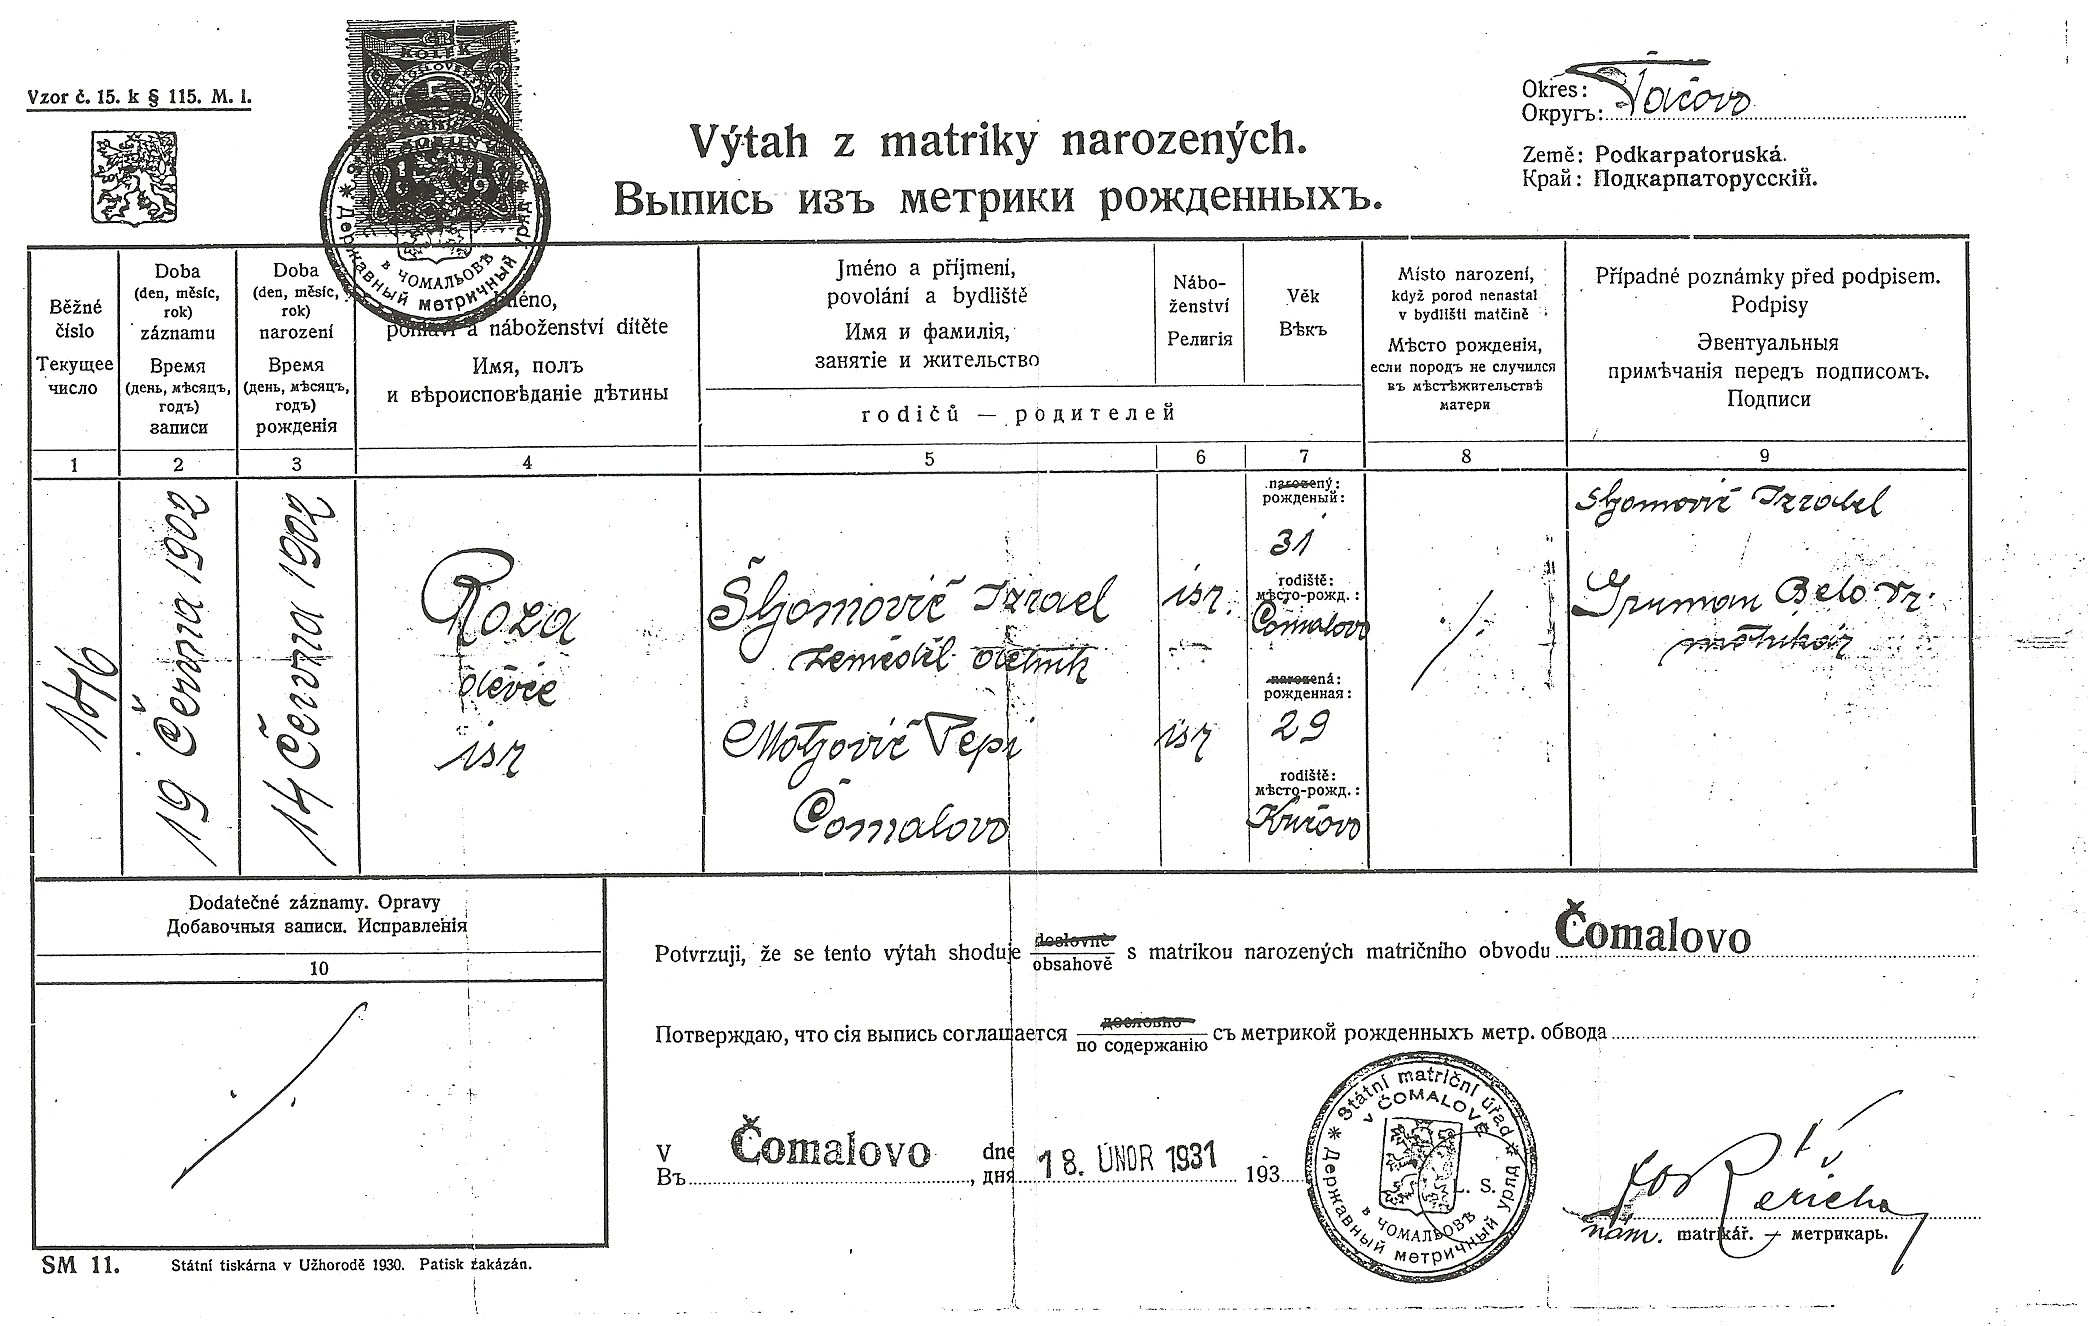 Vzor č. 15. k § 115. M. I.
KOLEK
1919
Държавный метричный уряд
в ЧОМАЛЬОВѢ
Výtah z matriky narozených.
Выпись изъ метрики рожденныхъ.
Okres:
Округъ: Tačovo
Země: Podkarpatoruská.
Край: Подкарпаторусскій.
Běžné
číslo
Текущее
число
Doba
(den, měsíc,
rok)
záznamu
Время
(день, мѣсяцъ,
годъ)
записи
Doba
(den, měsíc,
rok)
narození
Время
(день, мѣсяцъ,
годъ)
рожденія
Jméno,
pohlaví a náboženství dítěte
Имя, полъ
и вѣроисповѣданіе дѣтины
Jméno a příjmení,
povolání a bydliště
Имя и фамилія,
занятіе и жительство
Nábo-
ženství
Религія
Věk
Вѣкъ
rodičů — родителей
Místo narození,
když porod nenastal
v bydlišti matčině
Мѣсто рожденія,
если породъ не случился
въ мѣстѣжительствѣ
матери
Případné poznámky před podpisem.
Podpisy
Эвентуальныя
примѣчанія передъ подписомъ.
Подписи
1 2 3 4 5 6 7 8 9
146
19 Června 1902
14 Června 1902
Roza
děvče
isr
Šljomovič Izrael
zeměděl dělník
Motjovič Pepi
Čomalovo
isr.
isr
narozený:
рожденый:
31
rodiště:
мѣсто-рожд.:
Čomalovo
narozená:
рожденная:
29
rodiště:
мѣсто-рожд.:
./.
Šljomovič Izrael
Gruman Belo vr.
matrikár
Dodatečné záznamy. Opravy
Добавочныя записи. Исправленія
10
Potvrzuji, že se tento výtah shoduje doslovně obsahově s matrikou narozených matričního obvodu Čomalovo
Потверждаю, что сія выпись соглащается дословно по содержанію съ метрикой рожденныхъ метр. обвода
V
Въ Čomalovo, dne
дня 18. ÚNOR 1931 193
Státní matriční úřad
v ČOMALOVĚ
L. S.
в ЧОМАЛЬОВѢ
Державный метричный уряд
nám. matrikář. — метрикарь.
SM 11.
Státní tiskárna v Užhorodě 1930. Patisk zakázán.